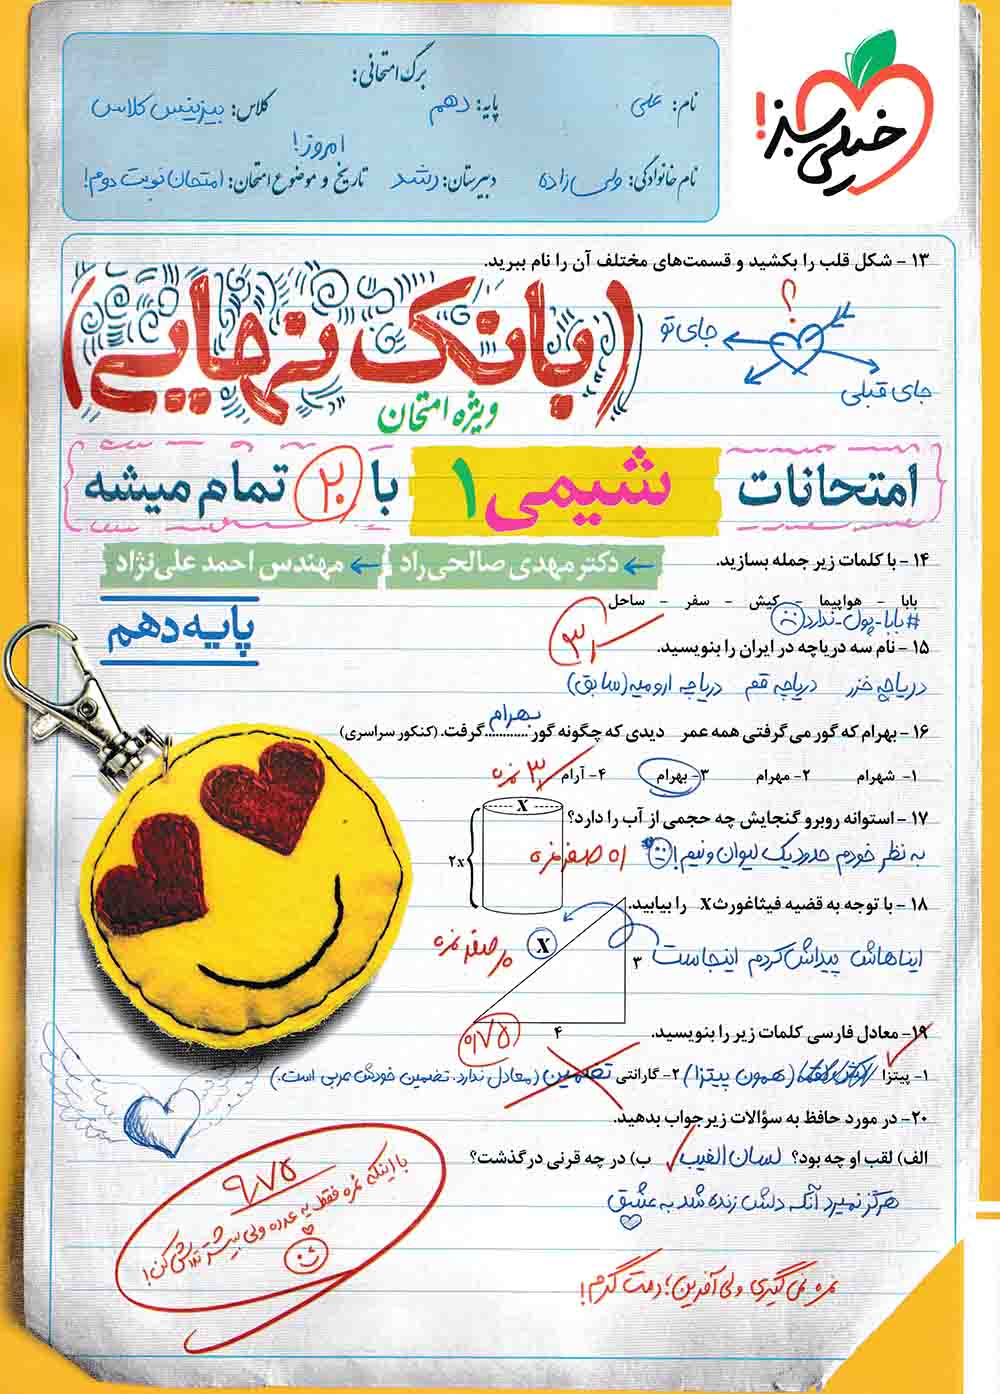 خیلی سبز!
برگ امتحانی:
نام: علی
پایه: دهم
کلاس: بیزینس کلاس
امروز!
نام خانوادگی: ولی زاده
دبیرستان: رشد
تاریخ و موضوع امتحان: امتحان نوبت دوم!
۱۳ - شکل قلب را بکشید و قسمت‌های مختلف آن را نام ببرید.
؟
جای تو
جای قبلی
(بانک نهایی)
ویژه امتحان
امتحانات شیمی ۱ با ۲۰ تمام میشه
دکتر مهدی صالحی‌راد
مهندس احمد علی‌نژاد
پایه دهم
۱۴ - با کلمات زیر جمله بسازید.
بابا - هواپیما - کیش - سفر - ساحل
#بابا-پول-ندارد
۱۵ - نام سه دریاچه در ایران را بنویسید.
دریاچه خزر دریاچه قم دریاچه ارومیه (سابق)
۱۶ - بهرام که گور می گرفتی همه عمر دیدی که چگونه گور ............ گرفت. (کنکور سراسری)
بهرام
۱- شهرام ۲- مهرام ۳- بهرام ۴- آرام
نمره
۱۷ - استوانه روبرو گنجایش چه حجمی از آب را دارد؟
x
۲x
به نظر خودم حدود یک لیوان و نیم!
صفر نمره
۱۸ - با توجه به قضیه فیثاغورث x را بیابید.
ایناهاش پیداش کردم اینجاست
X
۳
۴
صفر نمره
۱۹- معادل فارسی کلمات زیر را بنویسید.
۰/۷۵
۱- پیتزا (همون پیتزا) ۲- گارانتی تضمین (معادل ندارد. تضمین خودش عربی است.)
۲۰- در مورد حافظ به سؤالات زیر جواب بدهید.
الف) لقب او چه بود؟ لسان الغیب ب) در چه قرنی درگذشت؟
هرگز نمیرد آنکه دلش زنده شد به عشق
۹/۷۵
با اینکه نمره فقط یه عدده ولی بیشتر تلاش کن!
نمره نمی‌گیری ولی آفرین؛ دمت گرم!